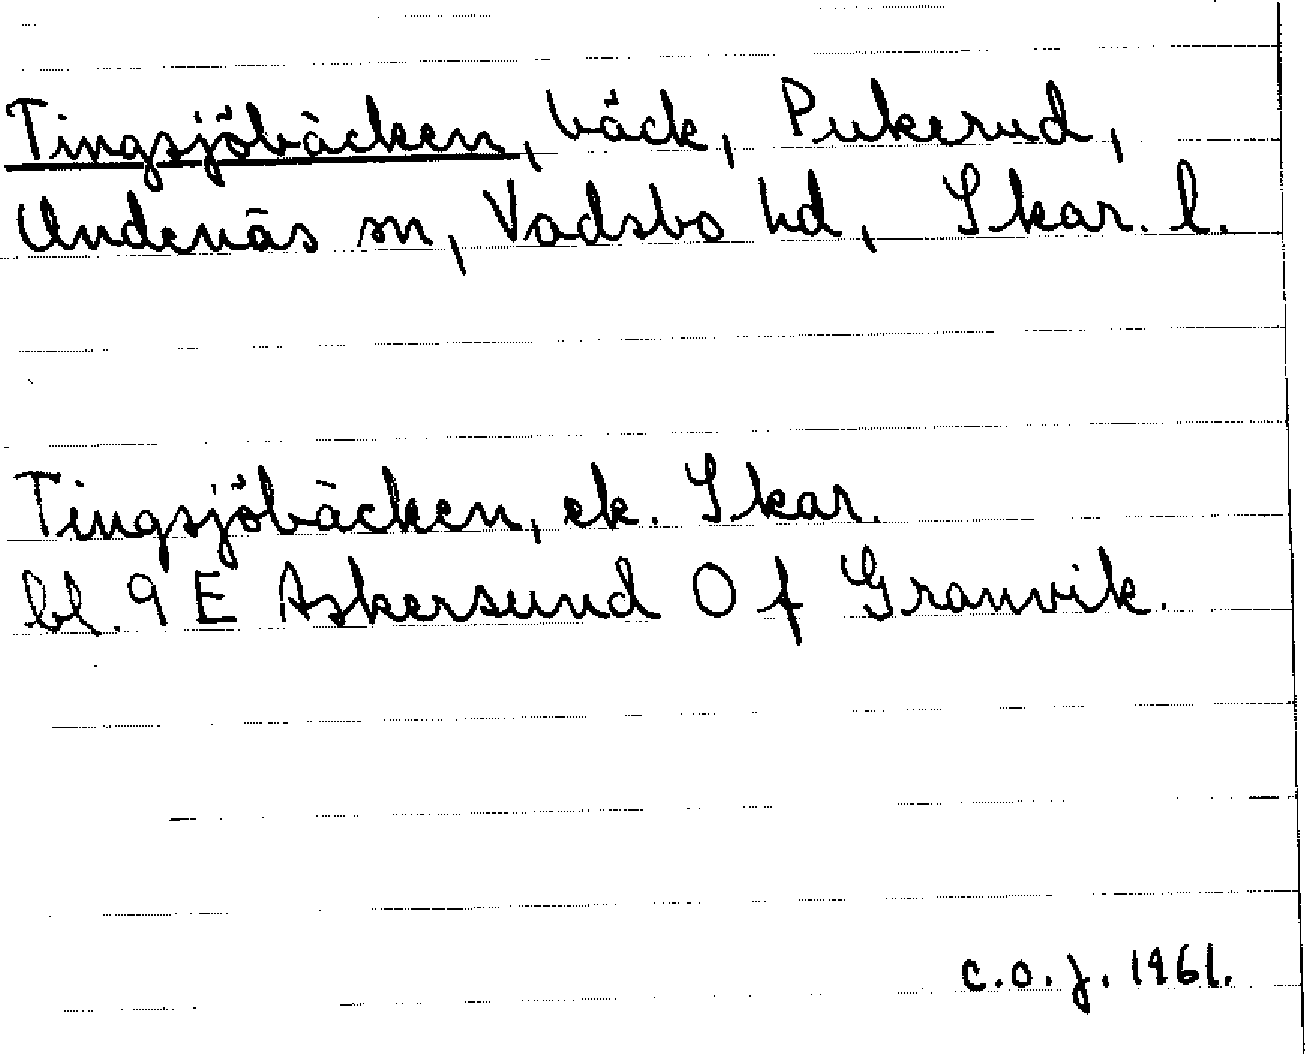 Tingsjöbäcken, bäck, Pukerud,
Undenäs sn, Vadsbo hd, Skar. l.
Tingsjöbäcken, ek. Skar.
bl. 9 E Askersund O f Granvik.
c.o.j. 1961.